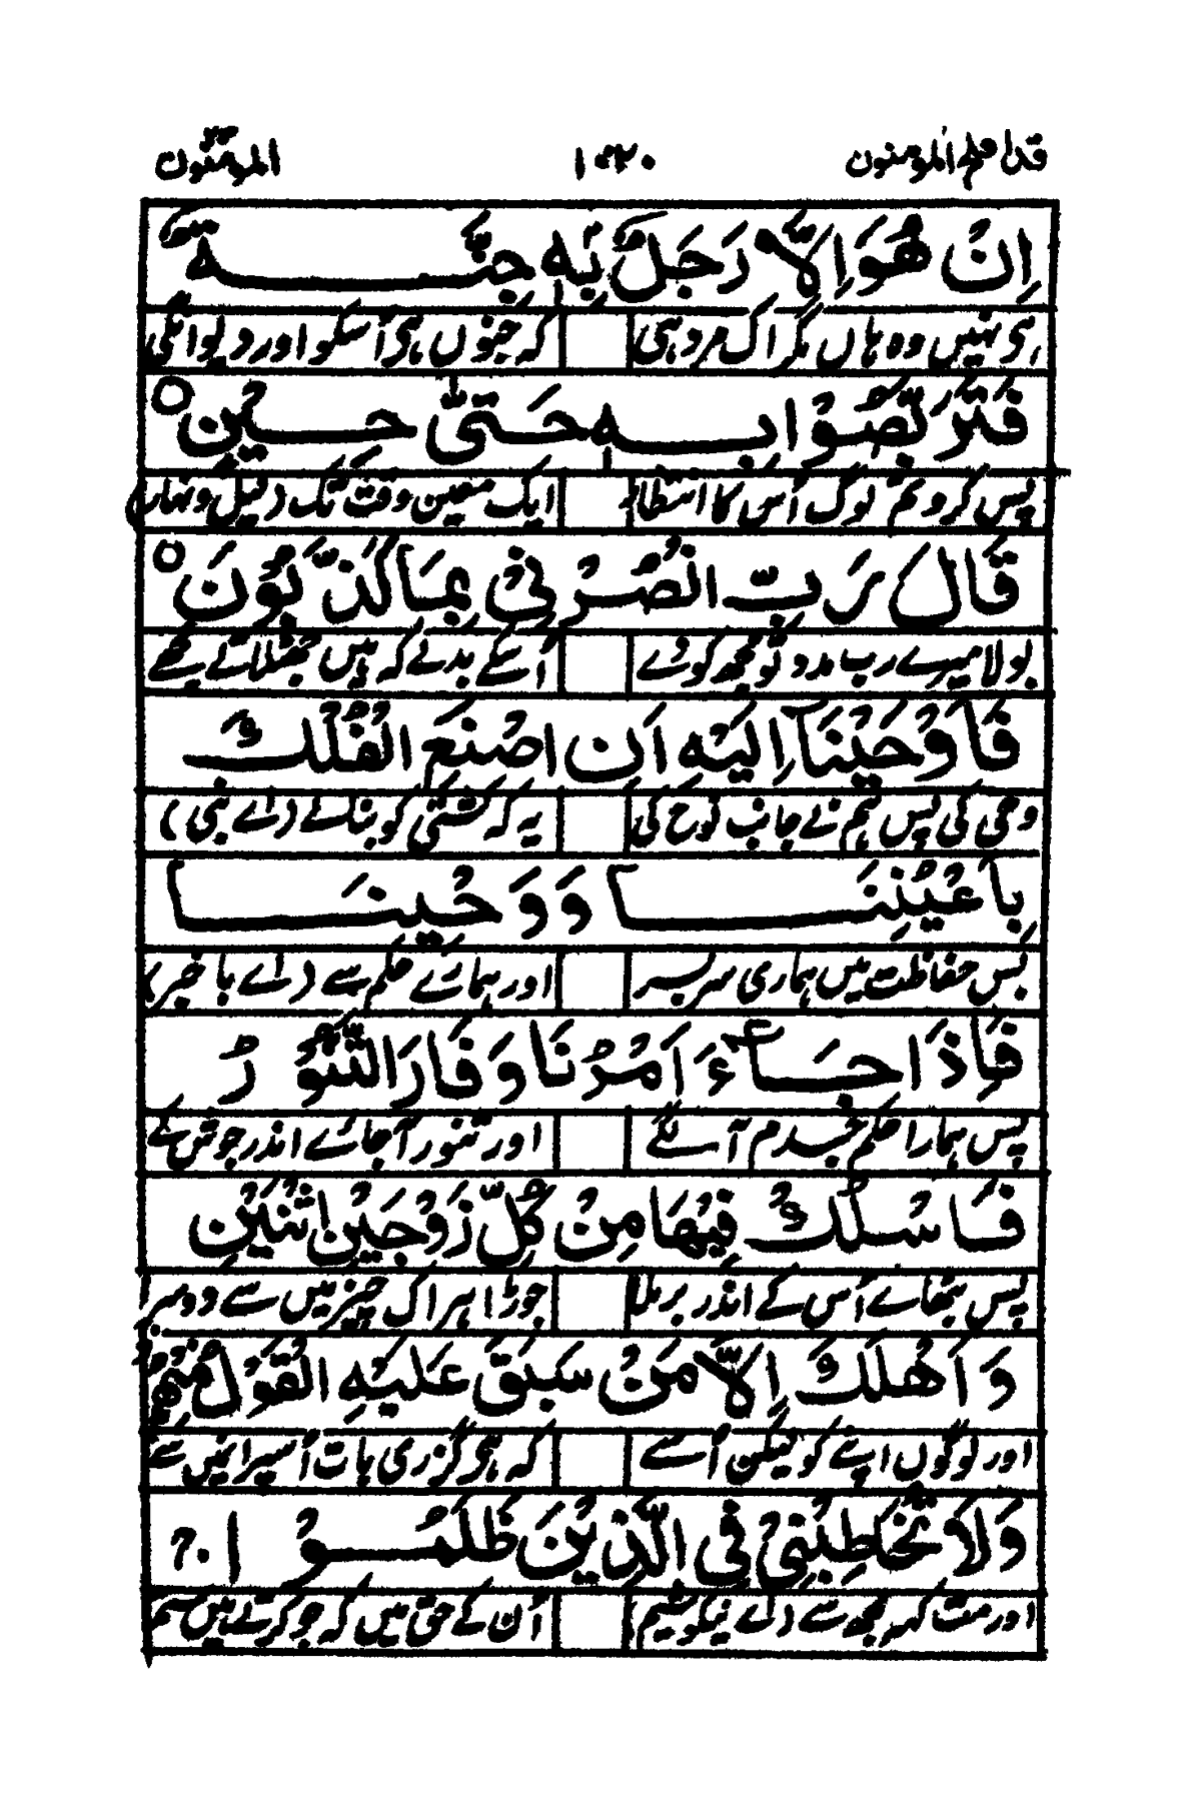 قد افلح المؤمنون ۱۰۲۰ المؤمنون
اِنْ هُوَ اِلَّا رَجُلٌۢ بِهٖ جِنَّةٌ
ہی نہیں وہ ہاں مگر اک مرد ہی کہ جنوں ہی اُسکو اور دیوانگی
فَتَرَبَّصُوْا بِهٖ حَتّٰى حِيْنٍ ۝
پس کرو تم لوگ اُس کا انتظار ایک معین وقت تک (لیل و نہار)
قَالَ رَبِّ انْصُرْنِيْ بِمَا كَذَّبُوْنَ ۝
بولا میرے رب مدد تو مجھ کو دے اُسکے بدلے کہ ہیں جھٹلاتے مجھے
فَاَوْحَيْنَآ اِلَيْهِ اَنِ اصْنَعِ الْفُلْكَ
وحی کی پس ہم نے جانب نوح کی یہ کہ کشتی کو بنالے (اے نبی)
بِاَعْيُنِنَا وَوَحْيِنَا
بس حفاظت میں ہماری سربسر اور ہمارے حکم سے (اے با خبر)
فَاِذَا جَآءَ اَمْرُنَا وَفَارَ التَّنُّوْرُ
پس ہمارا حکم جسدم آ سکے اور تنور آجائے اندر جوش کے
فَاسْلُكْ فِيْهَا مِنْ كُلٍّ زَوْجَيْنِ اثْنَيْنِ
پس بٹھالے اُس کے اندر برملا جوڑا ہر اک چیز میں سے دوسرا
وَاَهْلَكَ اِلَّا مَنْ سَبَقَ عَلَيْهِ الْقَوْلُ مِنْهُمْ
اور لوگوں اپنے کو لیکن اُسے کہ ہی گزری بات اُسپر انمیں سے
وَلَا تُخَاطِبْنِيْ فِي الَّذِيْنَ ظَلَمُوْا ج
اور مت کہہ مجھ سے (اے نیکو شیم) اُن کے حق میں کہ جو کرتے ہیں ستم